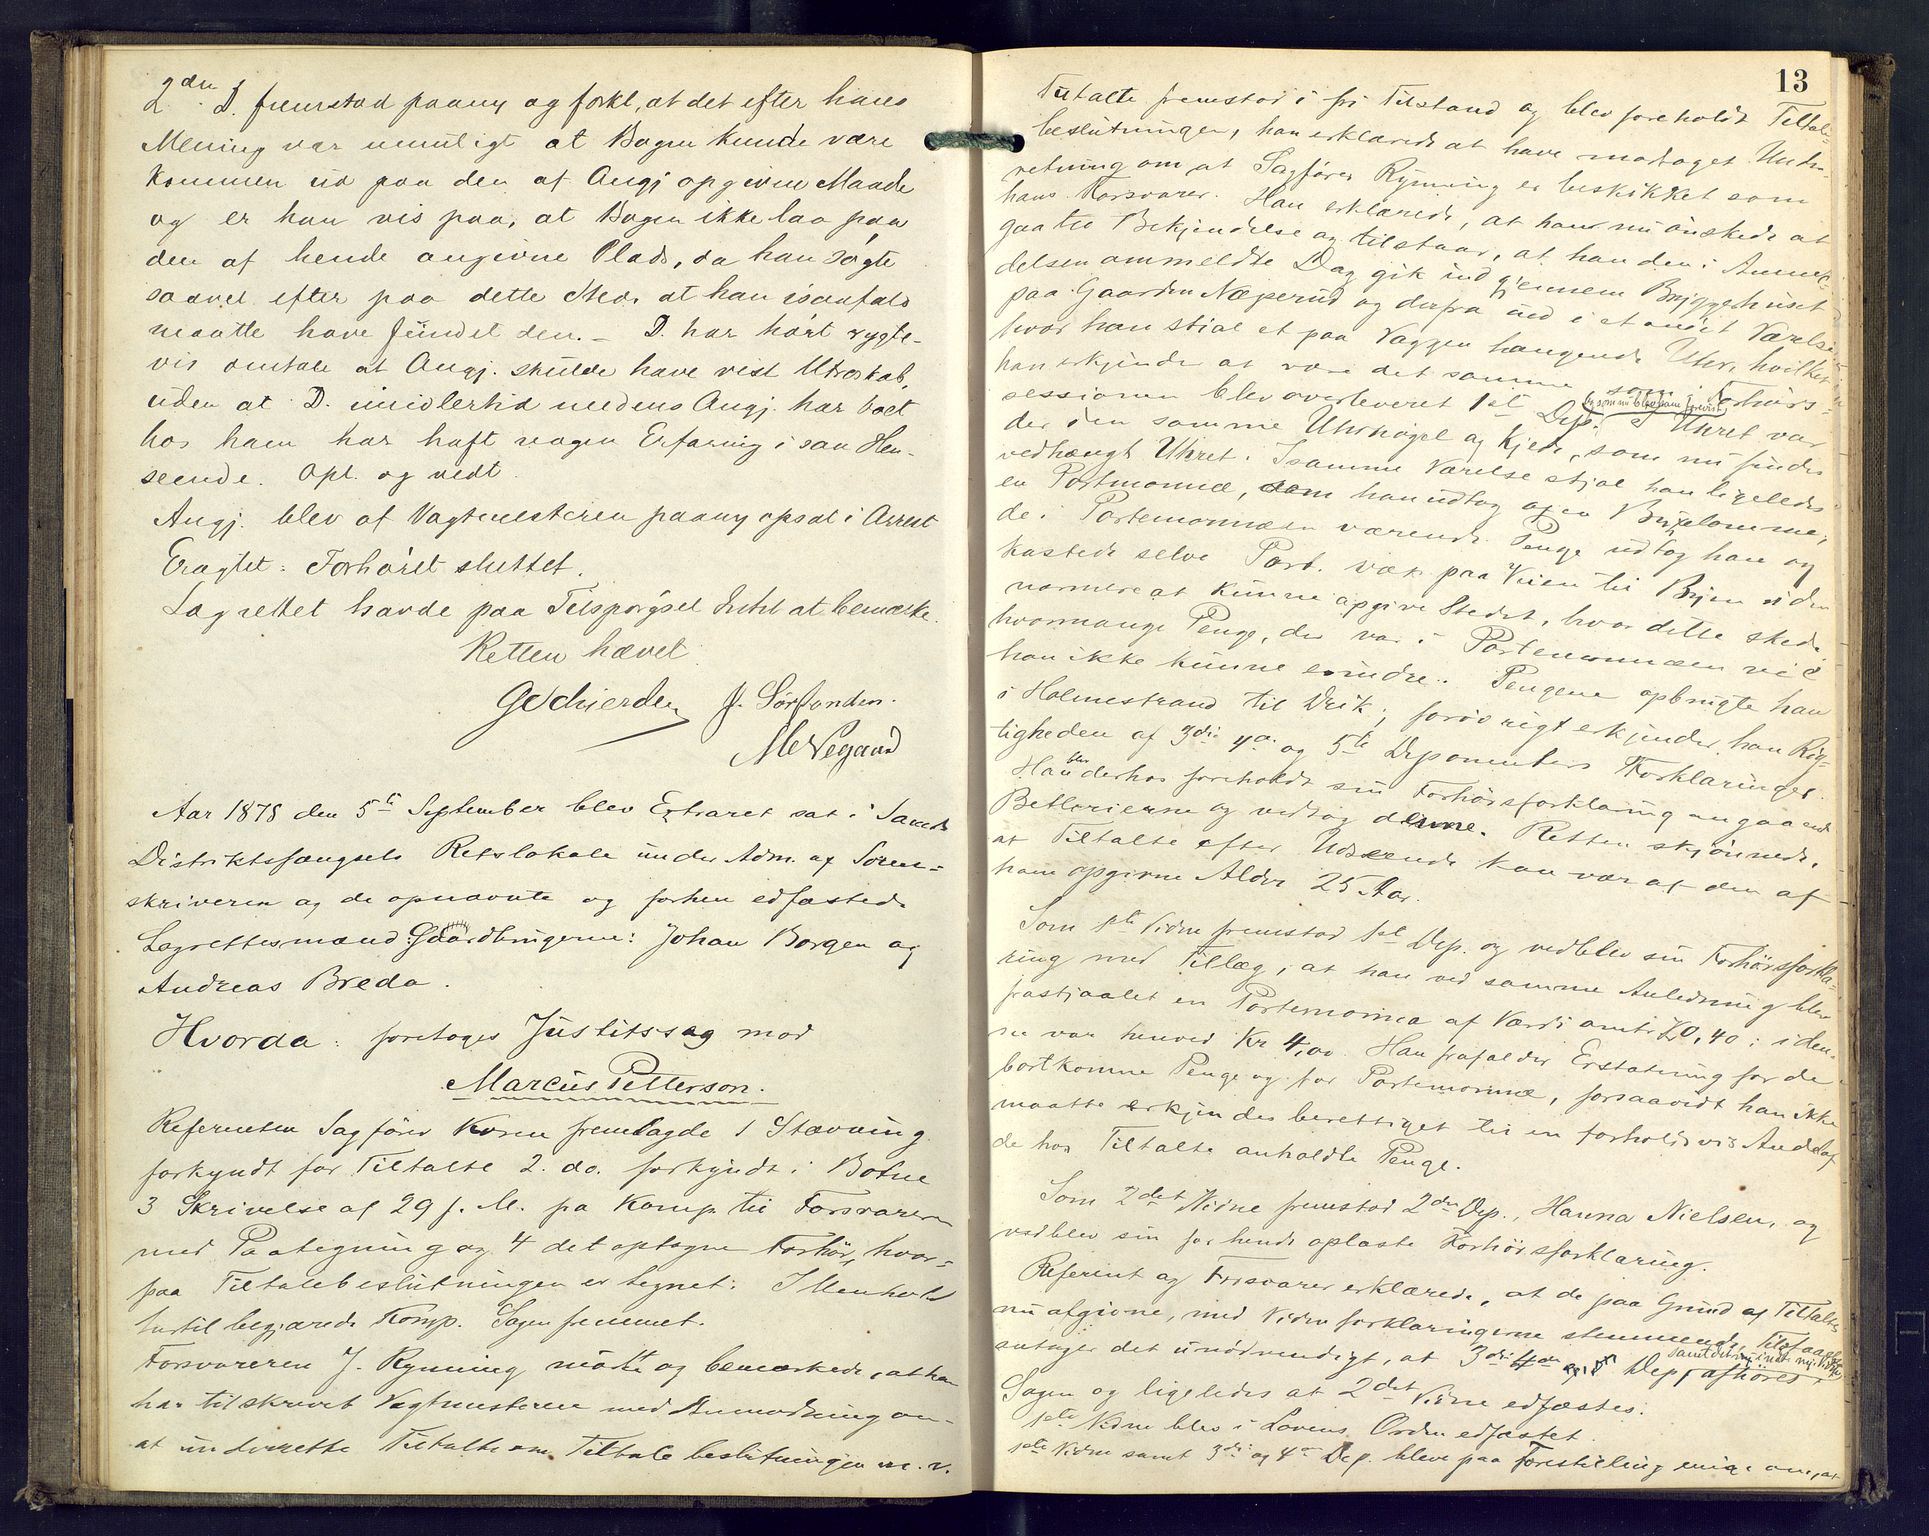 2den D. fremstod paany og forkl, at det efter hans
Mening var umuligt at Bogen kunde være
kommen ud paa den af Angj opgivne Maade
og er han vis paa, at Bogen ikke laa paa
den af hende angivne Plads, da han søgte
saavel efter paa dette Sted, at han isaafald
maatte have fundet den. – D. har hørt rygte-
vis omtale at Angj. skulde have vist Utroskab,
uden at D. imidlertid medens Angj. har boet
hos ham har haft nogen Erfaring i saa Hen-
seende. Opl. og vedt.
Angj. blev af Vagtmesteren paany opsat i Arrest
Eragtet: Forhøret sluttet.
Lagrettet havde paa Tilspørgsel Intet at bemærke.
Retten hævet
J. Sørfonden.
M Vegaard
Aar 1878 den 5te September blev Extraret sat i
Distriktsfængsels Retslokale under Adm. af Soren-
skriveren og de opnævnte og forhen edfæstede
Lagrettesmænd Gaardbrugerne: Johan Borgen og
Andreas Breda.
Hvorda: foretoges Justitssag mod
Marcus Petterson.
Referenten Sagfører Koren fremlagde 1 Stævning
forkyndt for Tiltalte 2. do. forkyndt i Botne
3 Skrivelse af 29 f. M. fra Komp. til Forsvareren
med Paategning og 4 det optagne Forhør, hvor-
paa Tiltalebeslutningen er tegnet. I Henhold
hertil begjærede Komp. Sagen fremmet.
Forsvareren J. Rynning mødte og bemærkede, at han
har tilskrevet Vagtmesteren med Anmodning om
at underrette Tiltalte om Tiltalebeslutningen m. v.
13
Tiltalte fremstod i fri Tilstand og blev foreholdt Tiltale-
beslutningen, han erklærede at have modtaget Under-
retning om, at Sagfører Rynning er beskikket som
hans Forsvarer. Han erklærede, at han nu ønskede at
gaa til Bekjendelse og tilstaar, at han den i Anmel-
delsen ommeldte Dag gik ind gjennem Bryggehuset
paa Gaarden Næperud og derfra ind i et andet Værelse
hvor han stjal et paa Væggen hængende Uhr, hvilket
han erkjender at være det samme, som i Forhørs-
sessionen blev overleveret 1ste Dep. og som nu blev ham forevist. I Uhret var
der den samme Uhrnøgel og Kjede, som nu findes
vedhængt Uhret. I samme Værelse stjal han ligeledes
en Portmonnæ, som han udtog af en Buxelomme,
de i Portemonnæen værende Penge udtog han og
kastede selve Port. væk paa Veien til Byen uden
nærmere at kunne opgive Stedet, hvor dette skede,
hvormange Penge, der var i Portemonnæen ved
han ikke kunne erindre. Pengene opbrugte han
i Holmestrand til Drik, forøvrigt erkjender han Rig-
tigheden af 3die 4de og 5te Deponenters Forklaringer.
Han blev derhos foreholdt sin Forhørsforklaring angaaende
Betlerierne og vedtog denne. Retten skjønnede,
at Tiltalte efter Udseende kan være af den af
ham opgivne Alder 25 Aar.
Som 1ste Vidne fremstod 1ste Dep. og vedblev sin Forhørsforkla-
ring med Tillæg, at han ved samme Anledning blev
frastjaalet en Portemonnæ af Værdi omtr 0,40; i den-
ne var henved Kr 4,00. Han frafalder Erstatning for de
bortkomne Penge og for Portemonnæ, forsaavidt han ikke
maatte erkjendes berettiget til en forholdsvis Andel af
de hos Tiltalte anholdte Penge.
Som 2det Vidne fremstod 2den Dep., Hanna Nielsen, og
vedblev sin for hende oplæste Forhørsforklaring.
Referent og Forsvarer erklærede, at de paa Grund af Tiltaltes
nu afgivne, med Vidneforklaringerne stemmende Tilstaaelse
antager det unødvendigt, at 3die Dep. afhøres i
Sagen og ligeledes at 2det Vidne edfæstes.
1ste Vidne blev i Lovens Orden edfæstet.
1ste Vidne samt 3die og 4de Dep. bleve paa Forestilling enige om, at